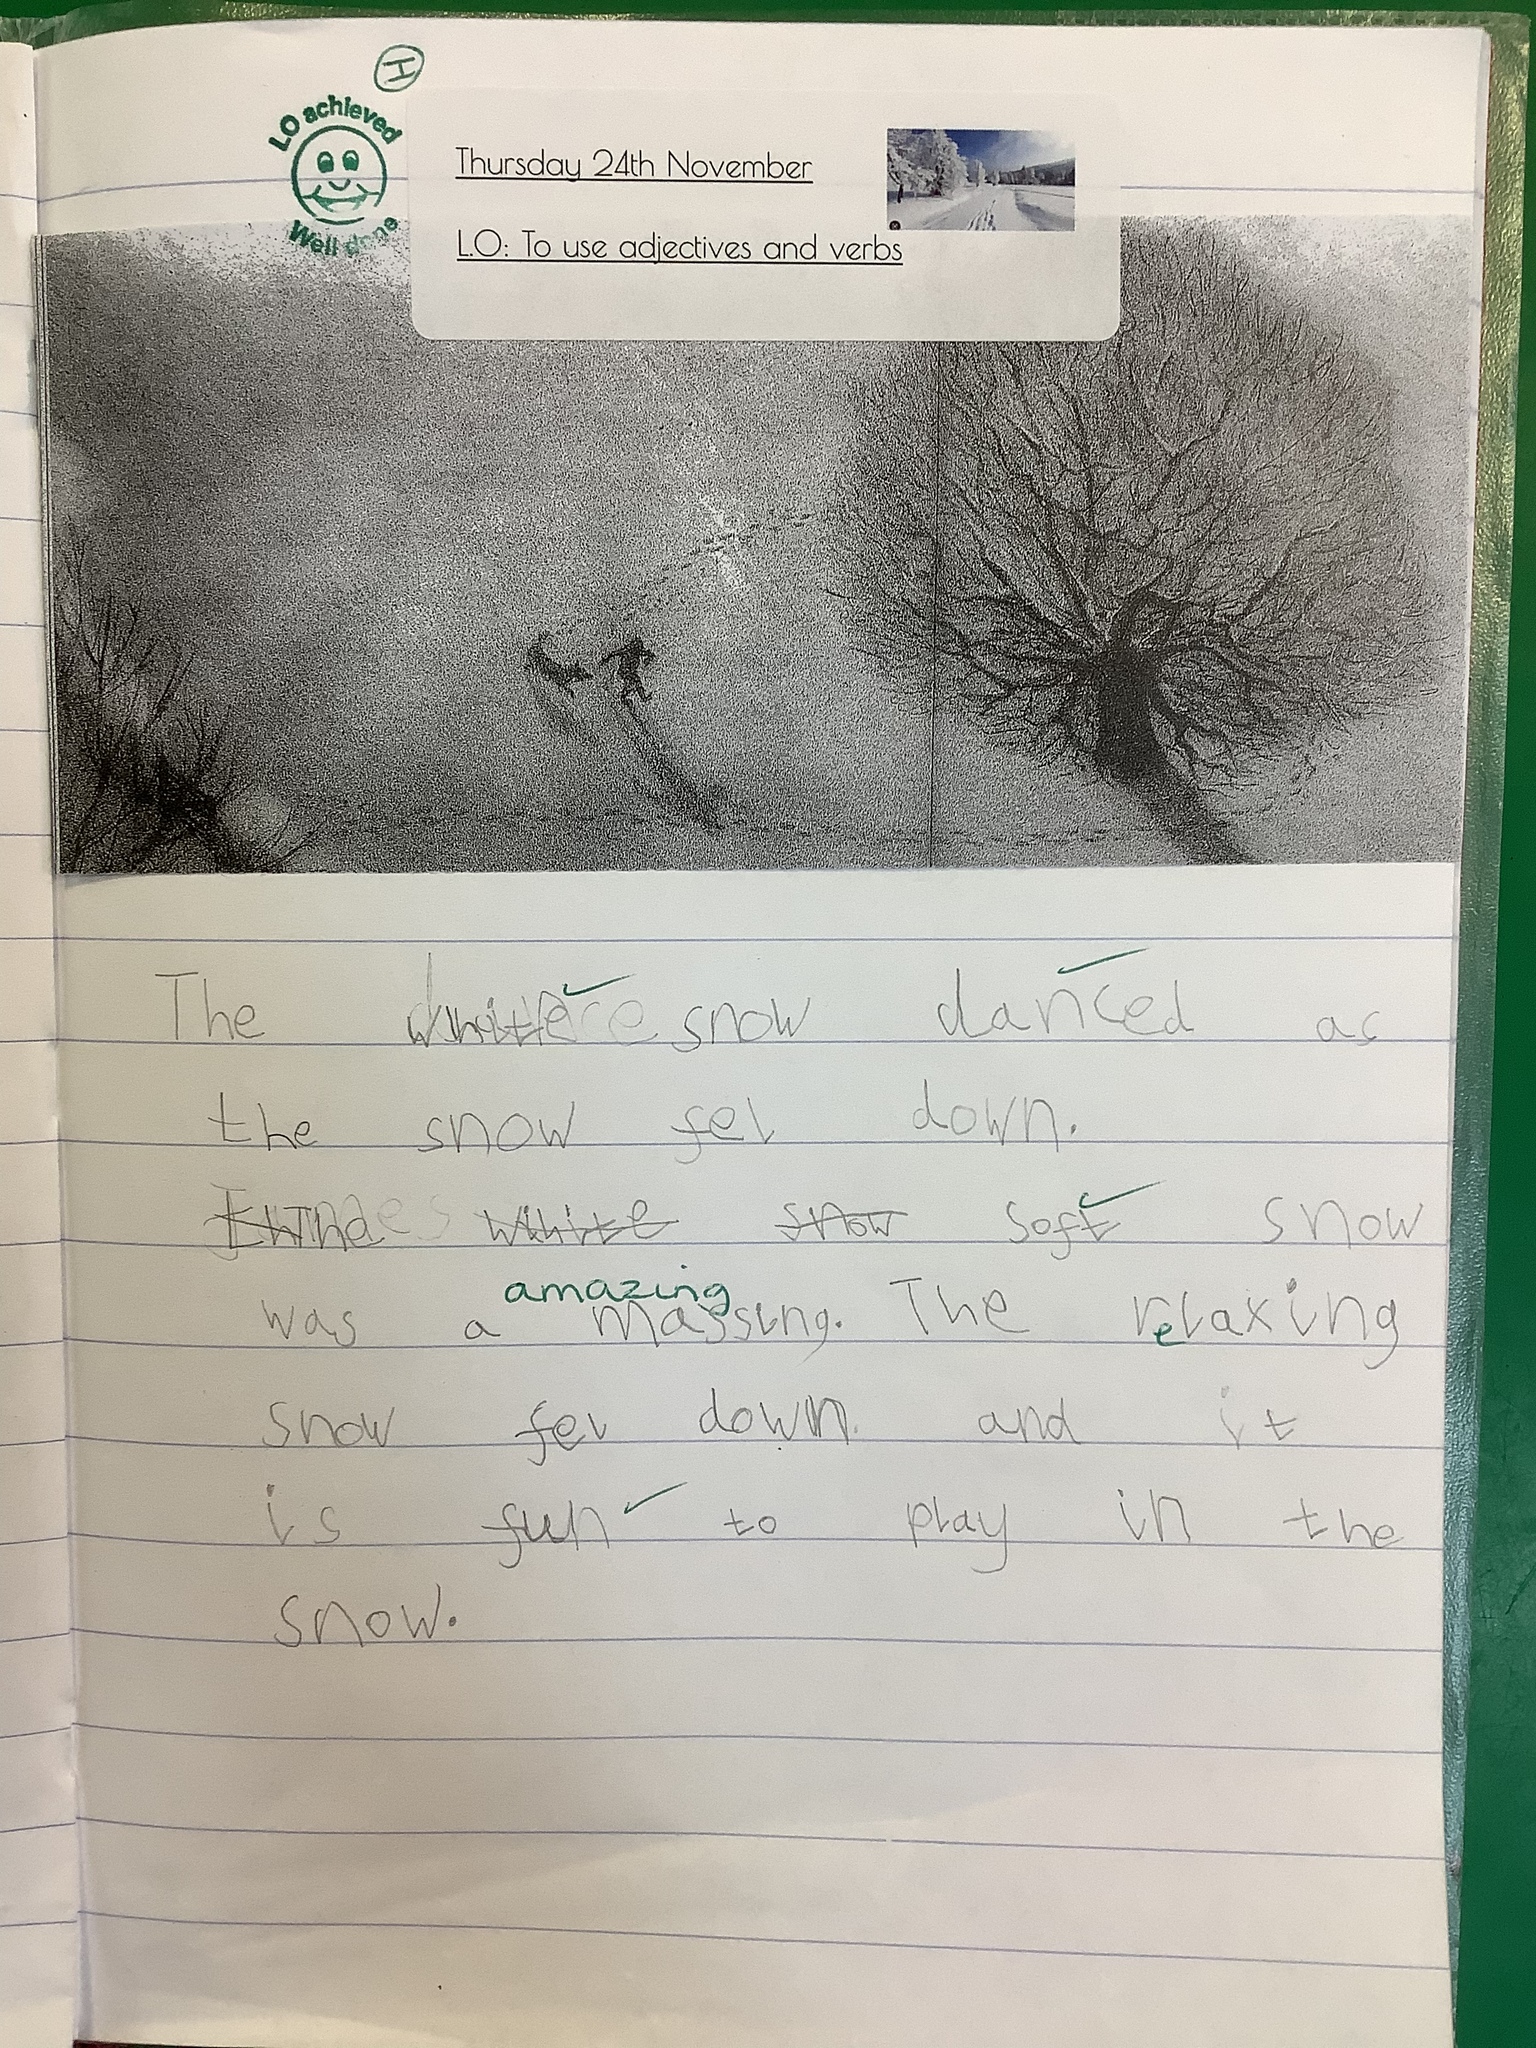 H
LO achieved
Well done
Thursday 24th November
L.O: To use adjectives and verbs
The white snow danced as
the snow fel down.
white snow soft snow
amazing
was a massing. The relaxing
snow fel down. and it
is fun to play in the
snow.